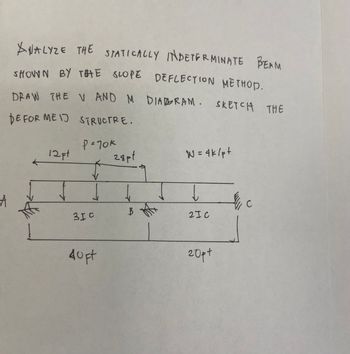 ANALYZE THE STATICALLY INDETERMINATE BEAM
SHOWN BY THE SLOPE DEFLECTION METHOD.
DRAW THE V AND M DIAGRAM. SKETCH THE
DEFORMED STRUCTRE.
P=70K
12ft 28ft W=4k/ft
A B C
3IC 2IC
40ft 20ft